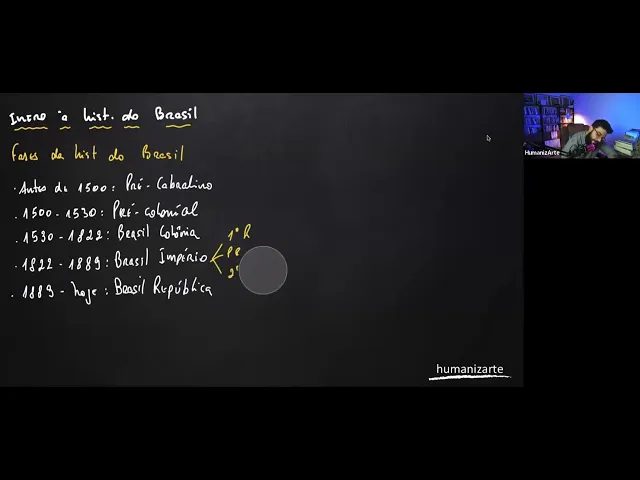 Intro à hist. do Brasil
Fases da hist do Brasil
. Antes de 1500: Pré-Cabralino
. 1500 - 1530: Pré-colonial
. 1530 - 1822: Brasil Colônia
. 1822 - 1889: Brasil Império
1º R
PR
2º
. 1889 - hoje: Brasil República
humanizarte
HumanizArte